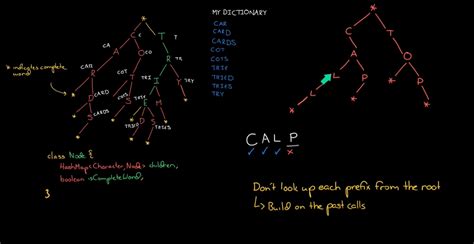 *
C T
CA A CO O R TR
CAR R COT T TRI I Y TRY
* indicates complete
word
D CARD S COTS TRIE E
S CARDS TRIED D S TRIES
class Node {
HashMap<Character, Node> children;
boolean isCompleteWord;
}
MY DICTIONARY
CAR
CARD
CARDS
COT
COTS
TRIE
TRIED
TRIES
TRY
*
C T
A O
L P P
L * *
*
C A L P
✓ ✓ ✓ ×
Don't look up each prefix from the root
↳ Build on the past calls